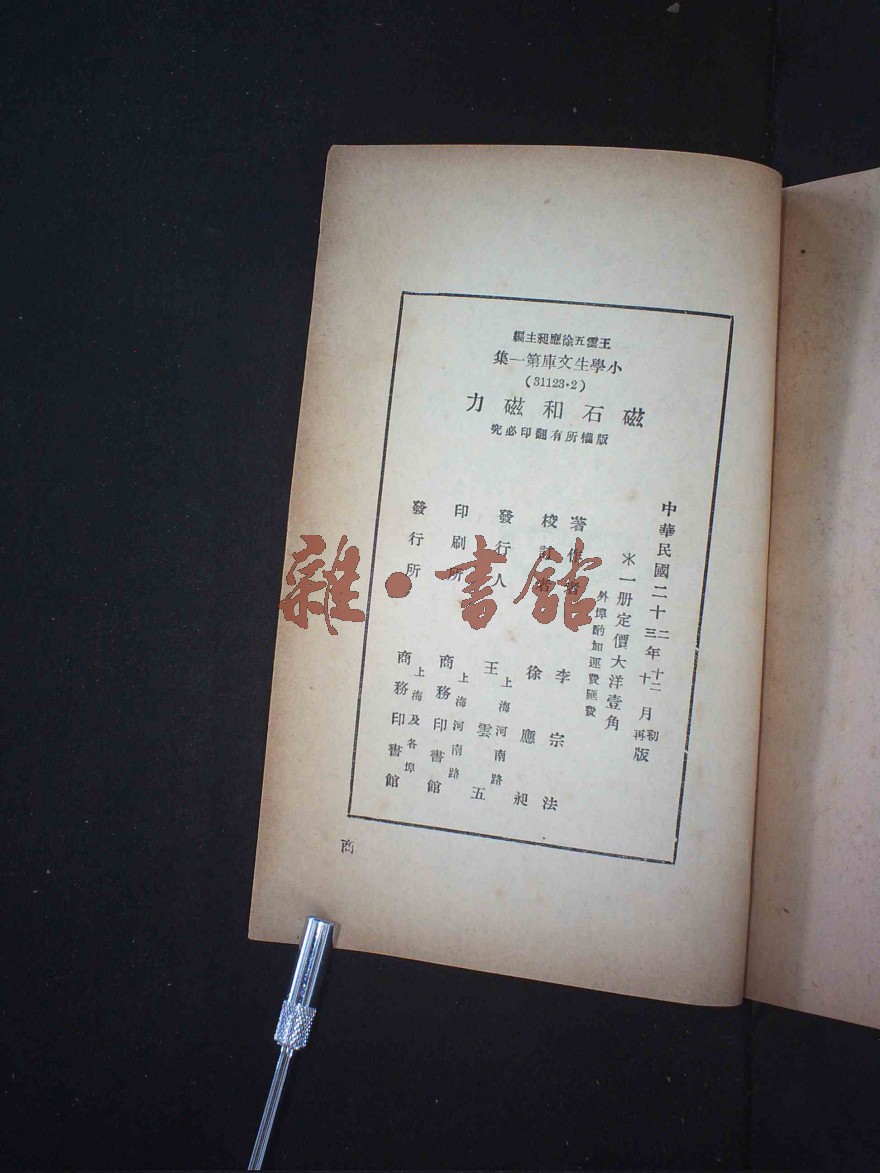 王雲五徐應昶主編
小學生文庫第一集
(31123·2)
磁石和磁力
版權所有翻印必究
中華民國二十二年十二月初版
中華民國二十三年十月再版
＊一册定價大洋壹角
外埠酌加運費匯費
著作者 李宗法
校訂者 徐應昶
發行人 王雲五
上海河南路
印刷所 商務印書館
上海河南路
發行所 商務印書館
上海及各埠
商
雜·書館